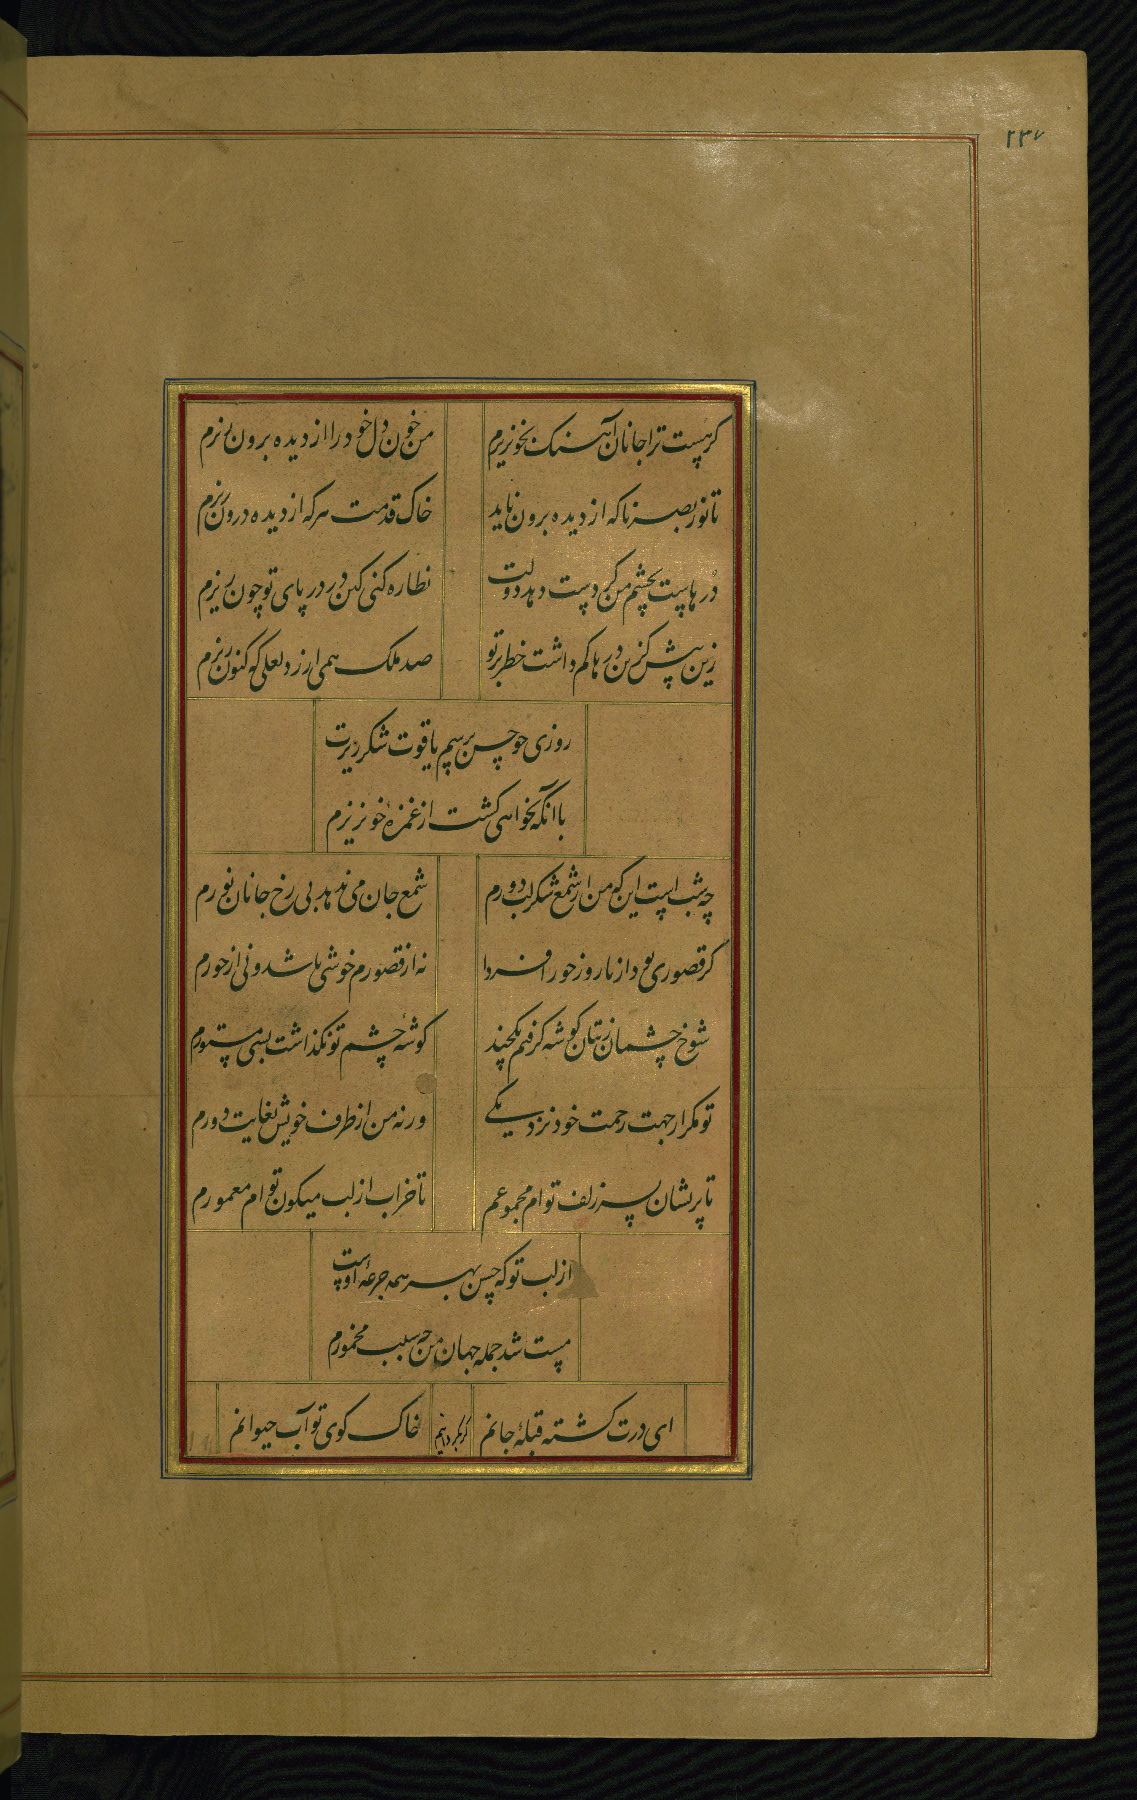 ۲۳۷
گر هست ترا جانان آهنگ بخونریزم من خون دل خود را از دیده برون ریزم
تا نور بصر ناگه از دیده برون ناید خاک قدمت هر گه از دیده درون ریزم
درهاست بچشم من گر دست دهد دولت نظاره کنی کین در در پای تو چون ریزم
زین پیش کزین درها کم داشت خطر بر تو صد ملک همی ارزد لعلی کو کنون ریزم
روزی چو حسن برسم یاقوت شکر ریزت
با آنکه بخواهی کشت از غمزه خونریزم
چه شبست این که من از شمع شکر لب دورم شمع جان می ندهد بی رخ جانان نورم
گر قصوری بود از ما روز حور فردا نه از قصورم خوشی باشد و نی از حورم
شوخ چشمان زبتان گوشه گرفتم یکچند گوشه چشم تو نگذاشت بسی مستورم
تو مگر از جهت رحمت خود نزدیکی ورنه من از طرف خویش بغایت دورم
تا پریشان سر زلف توام مجموعم تا خراب از لب میگون توام معمورم
از لب تو که حسن بهر همه جرعه اوست
مست شد جمله جهان من چه سبب مخمورم
ای درت گشته قبله جانم خاک کوی تو آب حیوانم